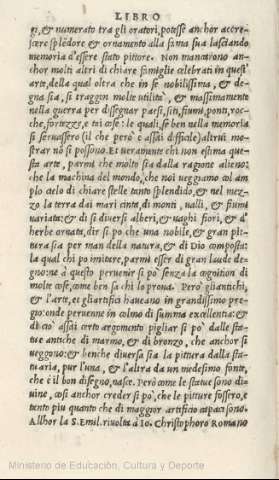 LIBRO
gi, & numerato tra gli oratori, potesse anchor accre-
scere splēdore & ornamento alla fama sua lasciando
memoria d'essere stato pittore. Non mancarono an-
chor molti altri di chiare famiglie celebrati in quest'
arte, della qual oltre che in se nobilissima, & de-
gna sia, si traggon molte utilità, & massimamente
nella guerra per disegnar paesi, siti, fiumi, ponti, roc-
che, fortezze, e tai cose: le quali, se ben nella memoria
si seruassero (il che però è assai difficile) altrui mo-
strar nō si possono. Et ueramente chi non estima que-
sta arte, parmi che molto sia dalla ragione alieno:
che la machina del mondo, che noi ueggiamo col am-
plo cielo di chiare stelle tanto splendido, & nel mez-
zo la terra dai mari cinta, di monti, ualli, & fiumi
uariata: & di si diuersi alberi, & uaghi fiori, & d'
herbe ornata, dir si po che una nobile, & gran pit-
tura sia per man della natura, & di Dio composta:
la qual chi po imitare, parmi esser di gran laude de-
gno: ne à questo peruenir si po senza la cognition di
molte cose, come ben sa chi lo proua. Però gli antichi,
& l'arte, et gli artifici haueano in grandissimo pre-
gio: onde peruenne in colmo di summa eccellentia: &
di ciò assai certo argomento pigliar si po dalle sta-
tue antiche di marmo, & di bronzo, che anchor si
ueggono: & benche diuersa sia la pittura dalla sta-
tuaria, pur l'una, & l'altra da un medesimo fonte,
che è il bon disegno, nasce. Però come le statue sono di-
uine, cosi anchor creder si po, che le pitture fossero, e
tanto piu quanto che di maggior artificio capaci sono.
Allhor la S. Emil. riuolta à Io. Christophoro Romano
Ministerio de Educación, Cultura y Deporte